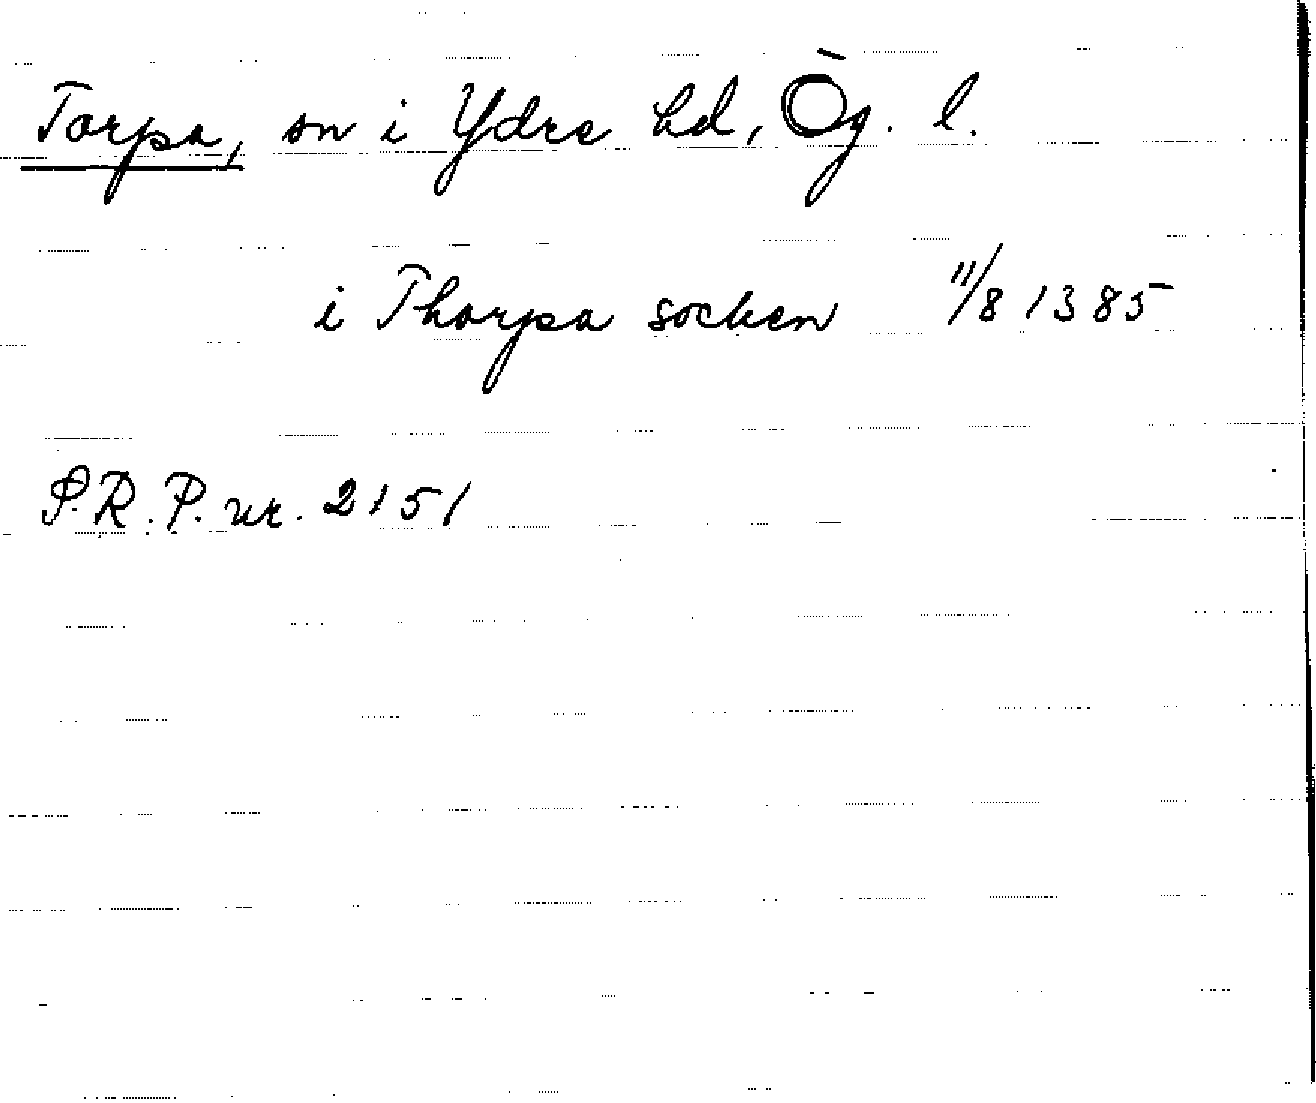 Torpa, sn i Ydre hd, Ög. l.
i Thorpa socken 11/8 1385
S.R.P. nr. 2151